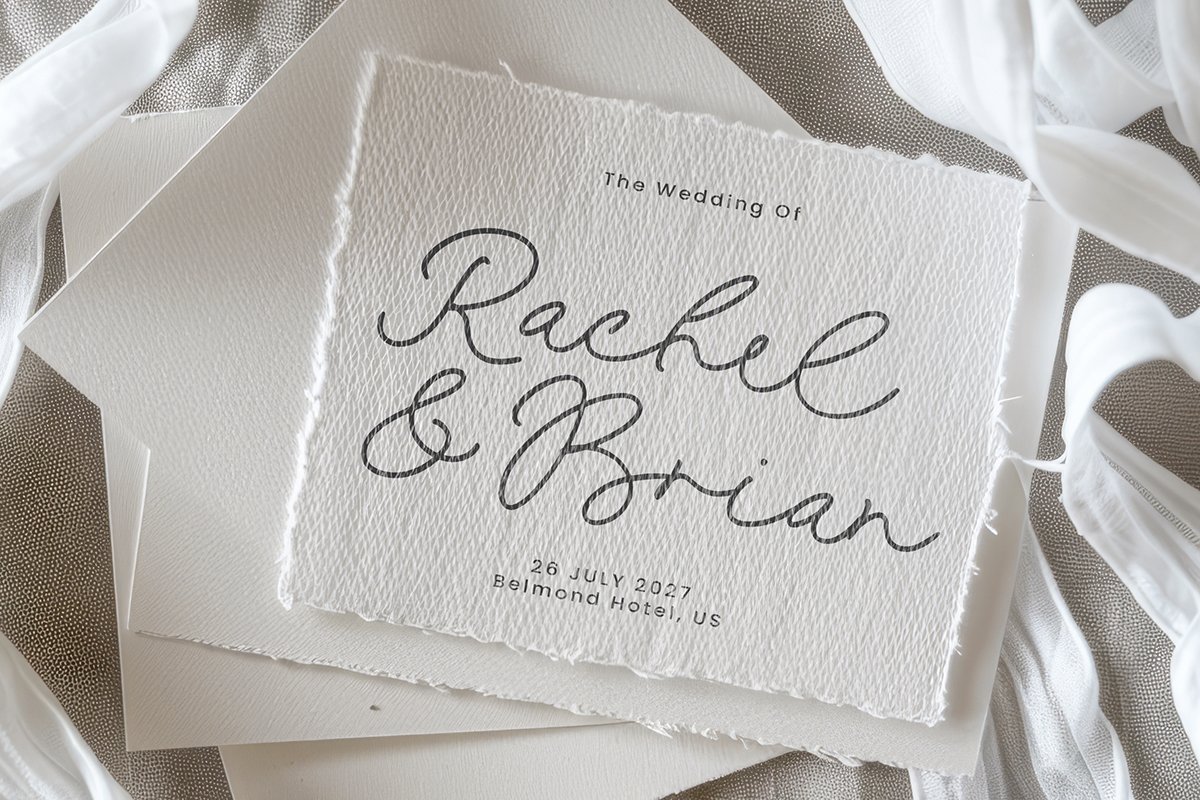 The Wedding Of
Rachel
& Brian
26 JULY 2027
Belmond Hotel, US